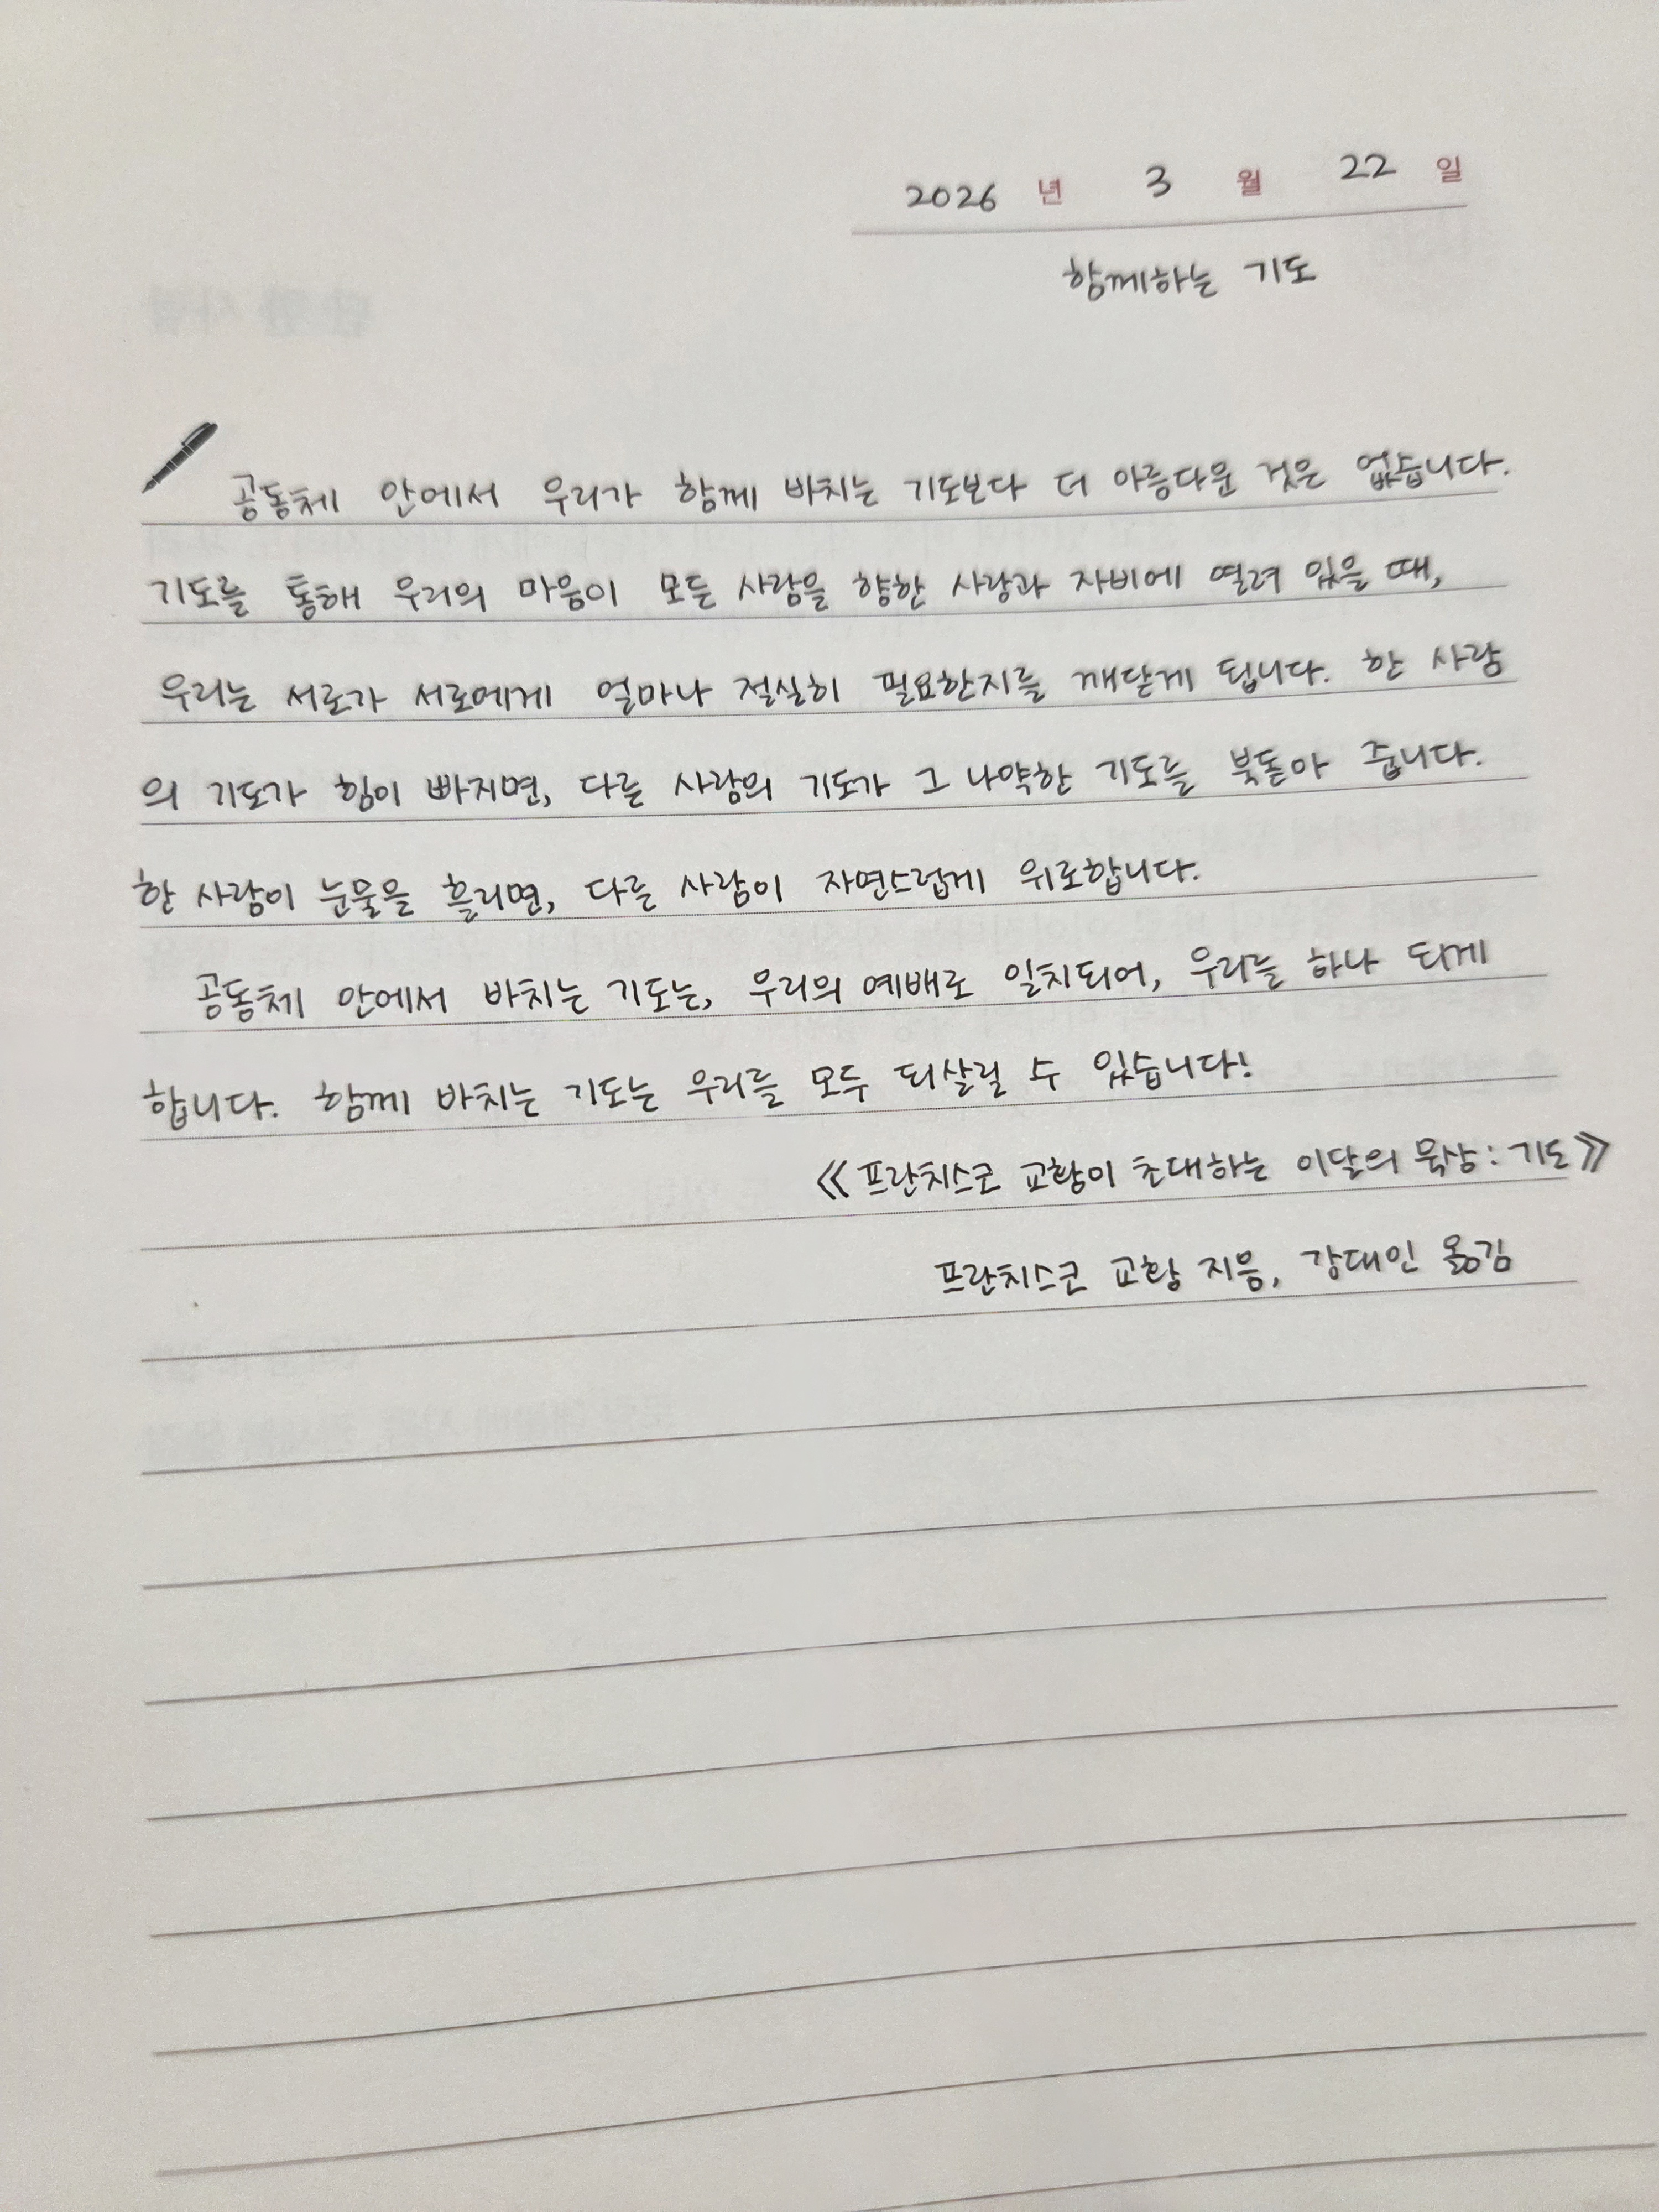 2026 년 3 월 22 일
함께하는 기도
공동체 안에서 우리가 함께 바치는 기도보다 더 아름다운 것은 없습니다.
기도를 통해 우리의 마음이 모든 사람을 향한 사랑과 자비에 열려 있을 때,
우리는 서로가 서로에게 얼마나 절실히 필요한지를 깨닫게 됩니다. 한 사람
의 기도가 힘이 빠지면, 다른 사람의 기도가 그 나약한 기도를 북돋아 줍니다.
한 사람이 눈물을 흘리면, 다른 사람이 자연스럽게 위로합니다.
공동체 안에서 바치는 기도는, 우리의 예배로 일치되어, 우리를 하나 되게
합니다. 함께 바치는 기도는 우리를 모두 되살릴 수 있습니다!
《프란치스코 교황이 초대하는 이달의 묵상: 기도》
프란치스코 교황 지음, 강대인 옮김